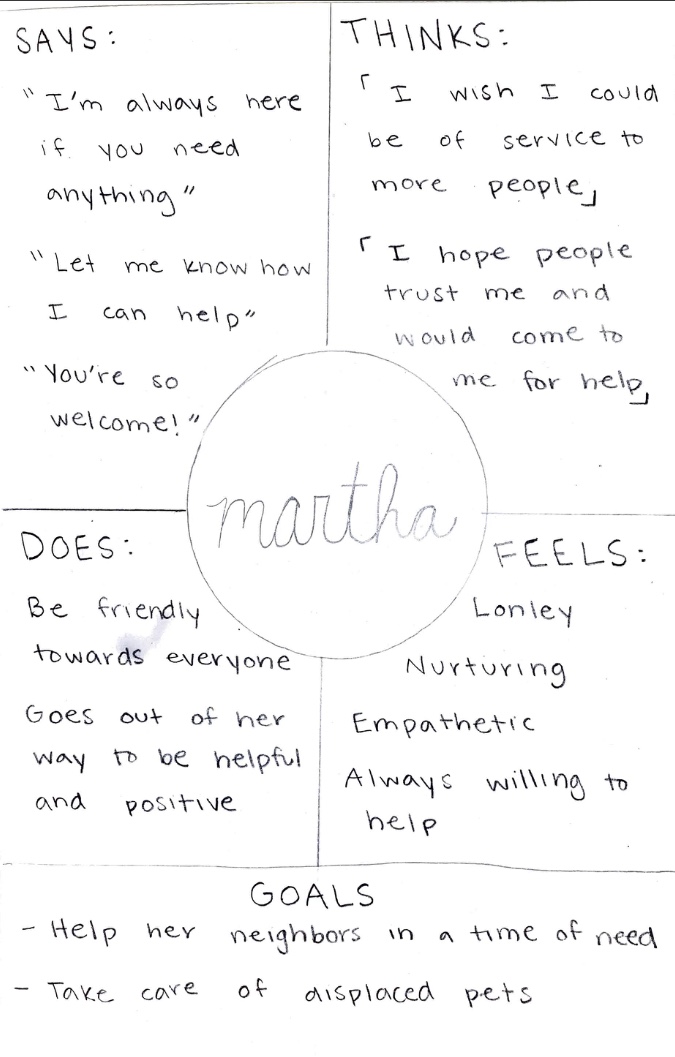 SAYS:
"I'm always here
if you need
anything"
"Let me know how
I can help"
"You're so
welcome!"
THINKS:
「I wish I could
be of service to
more people」
「I hope people
trust me and
would come to
me for help」
martha
DOES:
Be friendly
towards everyone
Goes out of her
way to be helpful
and positive
FEELS:
Lonley
Nurturing
Empathetic
Always willing to
help
GOALS
- Help her neighbors in a time of need
- Take care of displaced pets